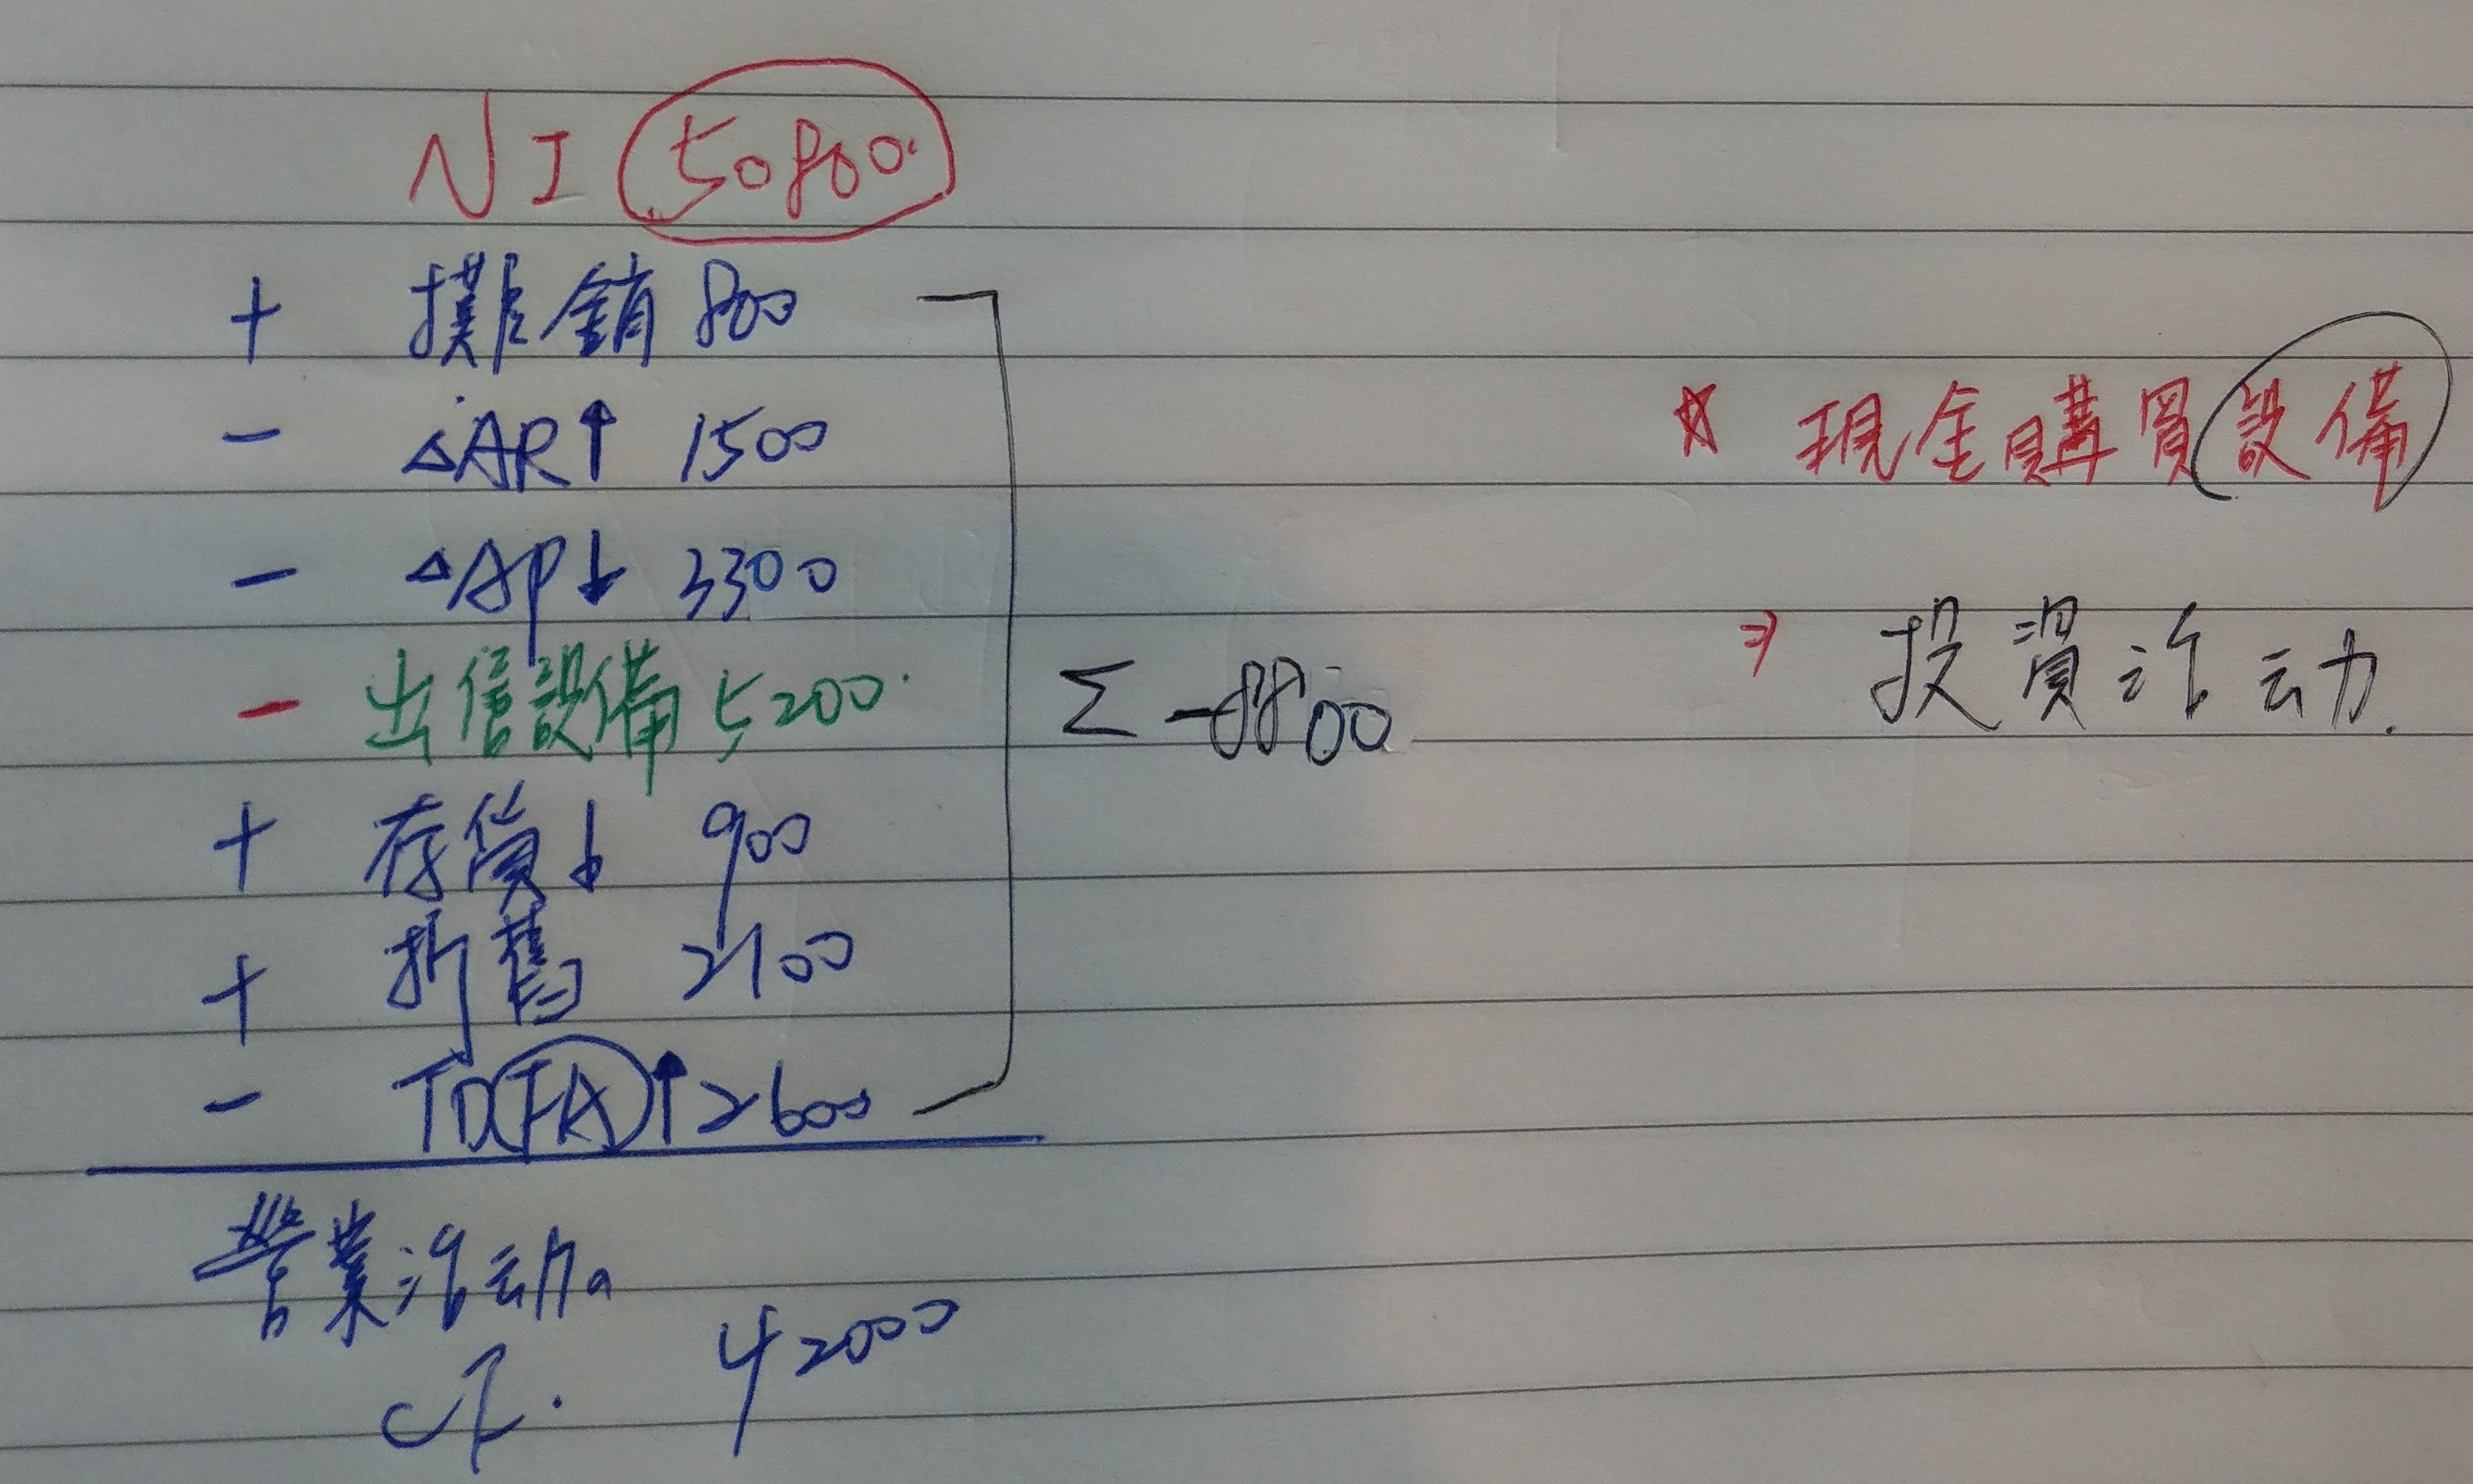 NI 50800
+ 攤銷 800
- ΔAR↑ 1500
- ΔAP↓ 3300
- 出售設備 5200
+ 存貨↓ 900
+ 折舊 2100
- TD(FA)↑ 2600
Σ -8800
營業活动
CF. 42000
☆ 現金購買設備
⇒ 投資活动.